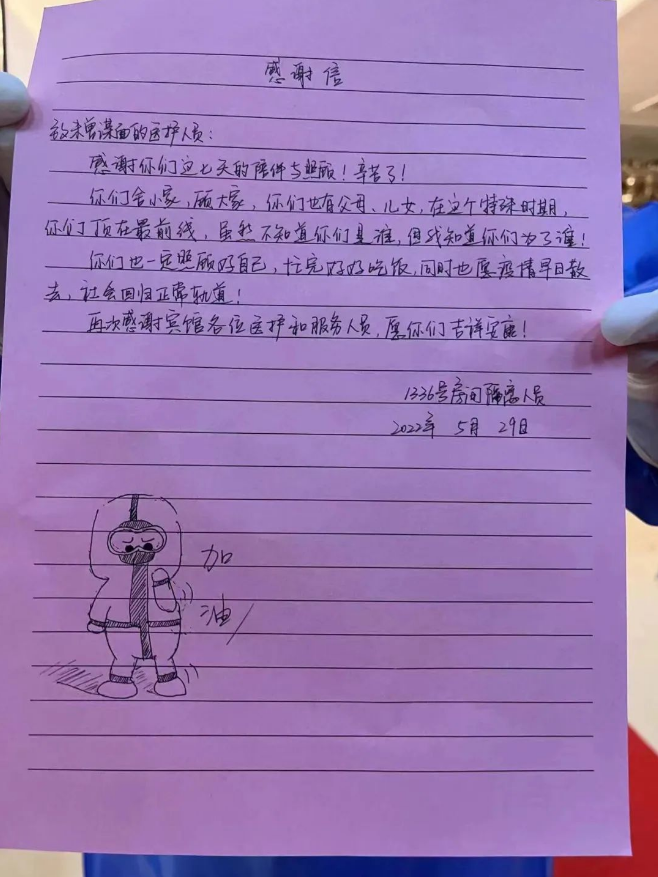 感谢信
致未曾谋面的医护人员：
感谢你们这七天的陪伴与照顾！辛苦了！
你们舍小家，顾大家，你们也有父母、儿女，在这个特殊时期，
你们顶在最前线，虽然不知道你们是谁，但我知道你们为了谁！
你们也一定照顾好自己，忙完好好吃饭，同时也愿疫情早日散
去，社会回归正常轨道！
再次感谢宾馆各位医护和服务人员，愿你们吉祥安康！
1336号房间隔离人员
2022年 5月 29日
加
油